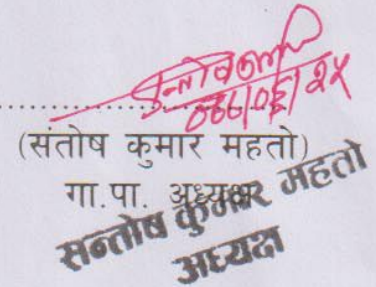 (संतोष कुमार महतो)
गा.पा. अध्यक्ष
सन्तोष कुमार महतो
अध्यक्ष